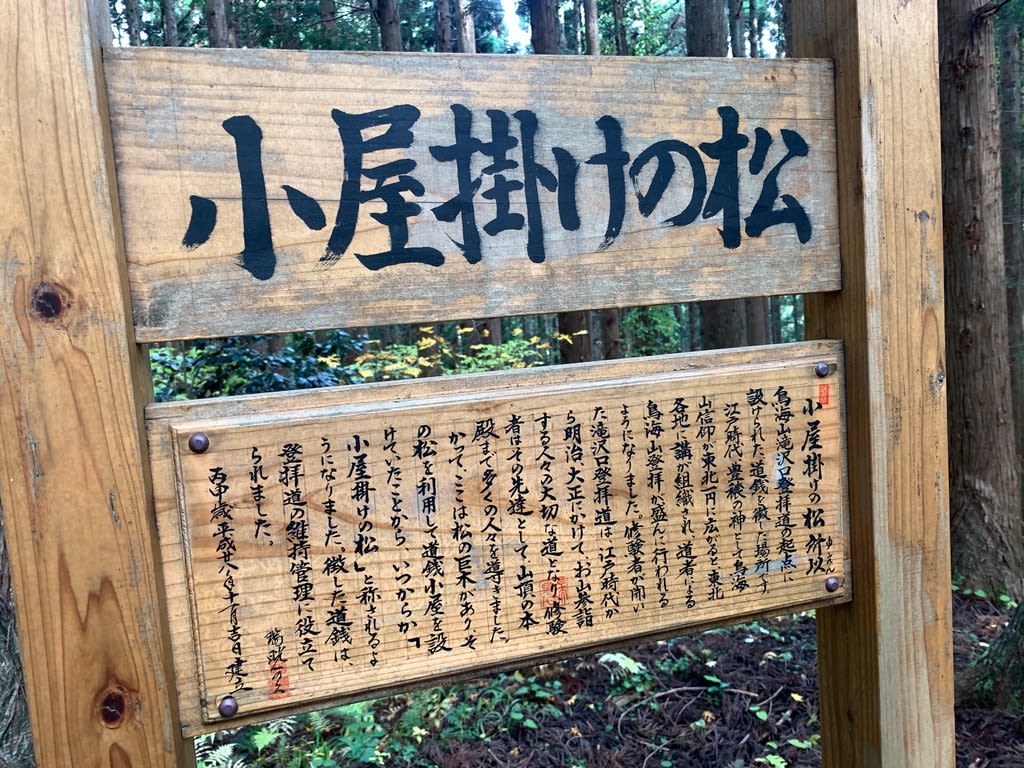 小屋掛けの松
小屋掛けの松所以
ゆえん
鳥海山滝沢口登拝道の起点に
設けられた道銭を徴した場所です。
江戸時代、豊穣の神として鳥海
山信仰が東北一円に広がると東北
各地に講が組織され、道者による
鳥海山登拝が盛んに行われる
ようになりました。修験者が開い
た滝沢口登拝道は、江戸時代か
ら明治、大正にかけて、お山参詣
する人々の大切な道となり、修験
者はその先達として山頂の本
殿まで多くの人々を導きました。
かつて、ここは松の巨木がありそ
の松を利用して道銭小屋を設
けていたことから、いつからか「
小屋掛けの松」と称されるよ
うになりました。徴した道銭は、
登拝道の維持管理に役立て
られました。
丙申歳平成廿八年十一月吉日建立